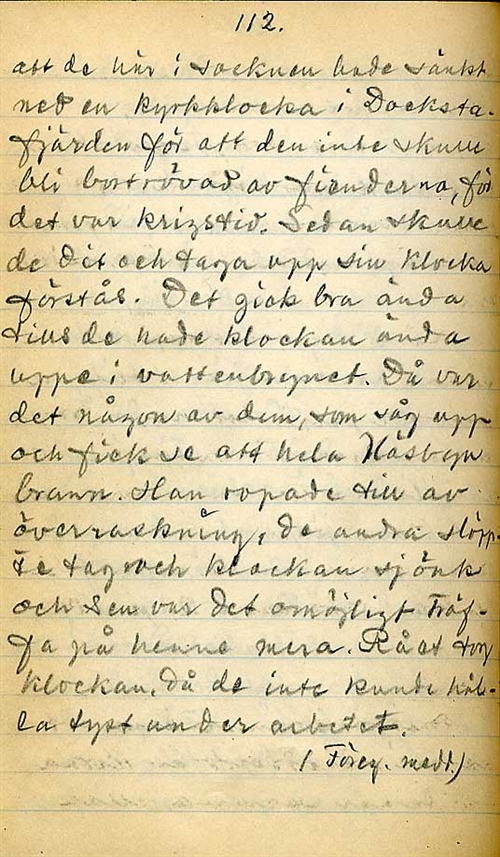 112.
att de här i socknen hade sänkt
ned en kyrkklocka i Docksta-
fjärden för att den inte skulle
bli bortrövad av fienderna, för
det var krigstid. Sedan skulle
de dit och taga upp sin klocka
förstås. Det gick bra ända
tills de hade klockan ända
uppe i vattenbrynet. Då var
det någon av dem, som såg upp
och fick se att hela Näsbyn
brann. Han ropade till av
överraskning, de andra släpp-
te tag och klockan sjönk
och sen var det omöjligt träf-
fa på henne mera. Rået tog
klockan, då de inte kunde hål-
la tyst under arbetet.
(Föreg. medd.)